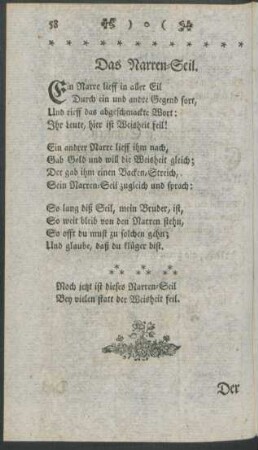 58 ) o (
Das Narren-Seil.
Ein Narre lieff in aller Eil
Durch ein und andre Gegend fort,
Und rieff das abgeschmackte Wort:
Ihr Leute, hier ist Weisheit feil!
Ein andrer Narre lieff ihm nach,
Gab Geld und will die Weisheit gleich;
Der gab ihm einen Backen-Streich,
Sein Narren-Seil zugleich und sprach:
So lang diß Seil, mein Bruder, ist,
So weit bleib von den Narren stehn,
So offt du must zu solchen gehn;
Und glaube, daß du klüger bist.
Noch jetzt ist dieses Narren-Seil
Bey vielen statt der Weisheit feil.
Der